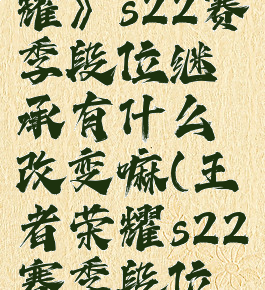 耀》s22赛
季段位继
承有什么
改变嘛(王
者荣耀s22
赛季段位